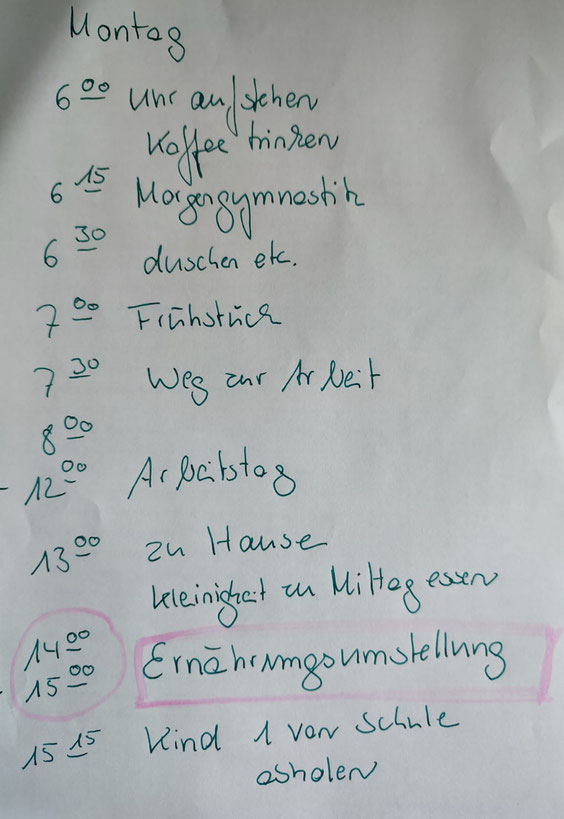 Montag
6 00 Uhr aufstehen
Kaffee trinken
6 15 Morgengymnastik
6 30 duschen etc.
7 00 Frühstück
7 30 Weg zur Arbeit
8 00
- 12 00 Arbeitstag
13 00 zu Hause
kleinigkeit zu Mittag essen
14 00
- 15 00 Ernährungsumstellung
15 15 Kind 1 von Schule
abholen